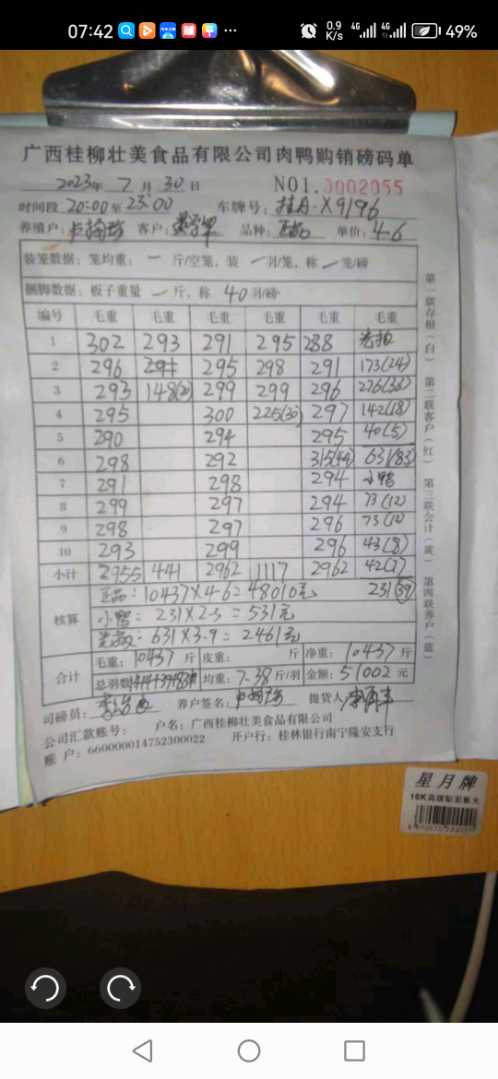 07:42
0.9 K/s 4G 4G 49%
广西桂柳壮美食品有限公司肉鸭购销磅码单
2023年 7 月 30 日 NO1.0002055
时间段 20:00 至 23:00 车牌号: 桂A·X9196
养殖户: 客户: 品种: 正品 单价: 4-6
装笼数据: 笼均重: 一 斤/空笼, 装 一 羽/笼, 称 一 笼/磅
捆脚数据: 板子重量 一 斤, 称 40 羽/磅
编号 毛重 毛重 毛重 毛重 毛重 毛重
1 302 293 291 295 288
2 296 295 298 291 173(24)
3 293 148 299 299 296 276(38)
4 295 300 225(30) 297 142(18)
5 290 294 295 40(5)
6 298 292 315(44) 631(83)
7 291 298 294 小鸭
8 299 297 294 73(12)
9 298 297 296 73(12)
10 293 299 296 43(8)
小计 2955 441 2962 1117 2962 42(7)
核算 正品: 10437×4-6=48010元 231(39)
小鸭: 231×2-3=531元
631×3.9=2461元
合计 毛重: 10437 斤 皮重: 斤 净重: 10437 斤
总羽数 均重: 7-38 斤/羽 金额: 51002 元
司磅员: 养户签名: 提货人:
公司汇款账号: 户名: 广西桂柳壮美食品有限公司
账 户: 660000014752300022 开户行: 桂林银行南宁隆安支行
第一联存根(白) 第二联客户(红) 第三联会计(黄) 第四联养户(蓝)
星月牌